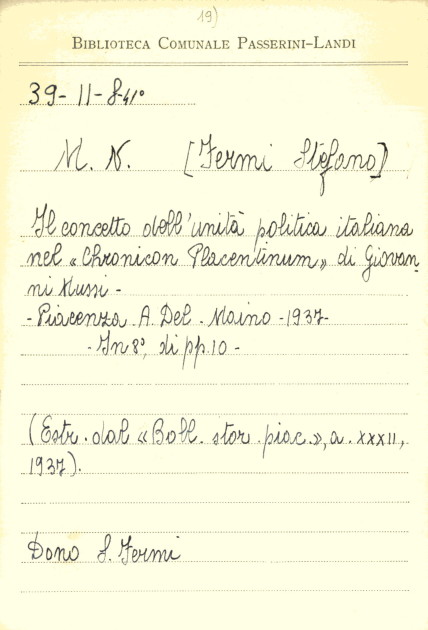 19)
BIBLIOTECA COMUNALE PASSERINI-LANDI
39-11-8-41°
M. N. [Fermi Stefano]
Il concetto dell'unità politica italiana
nel «Chronicon Placentinum» di Giovan-
ni Mussi -
- Piacenza. A. Del. Maino - 1937-
- In 8°, di pp. 10 -
(Estr. dal «Boll. stor. piac.», a. XXXII,
1937).
Dono S. Fermi